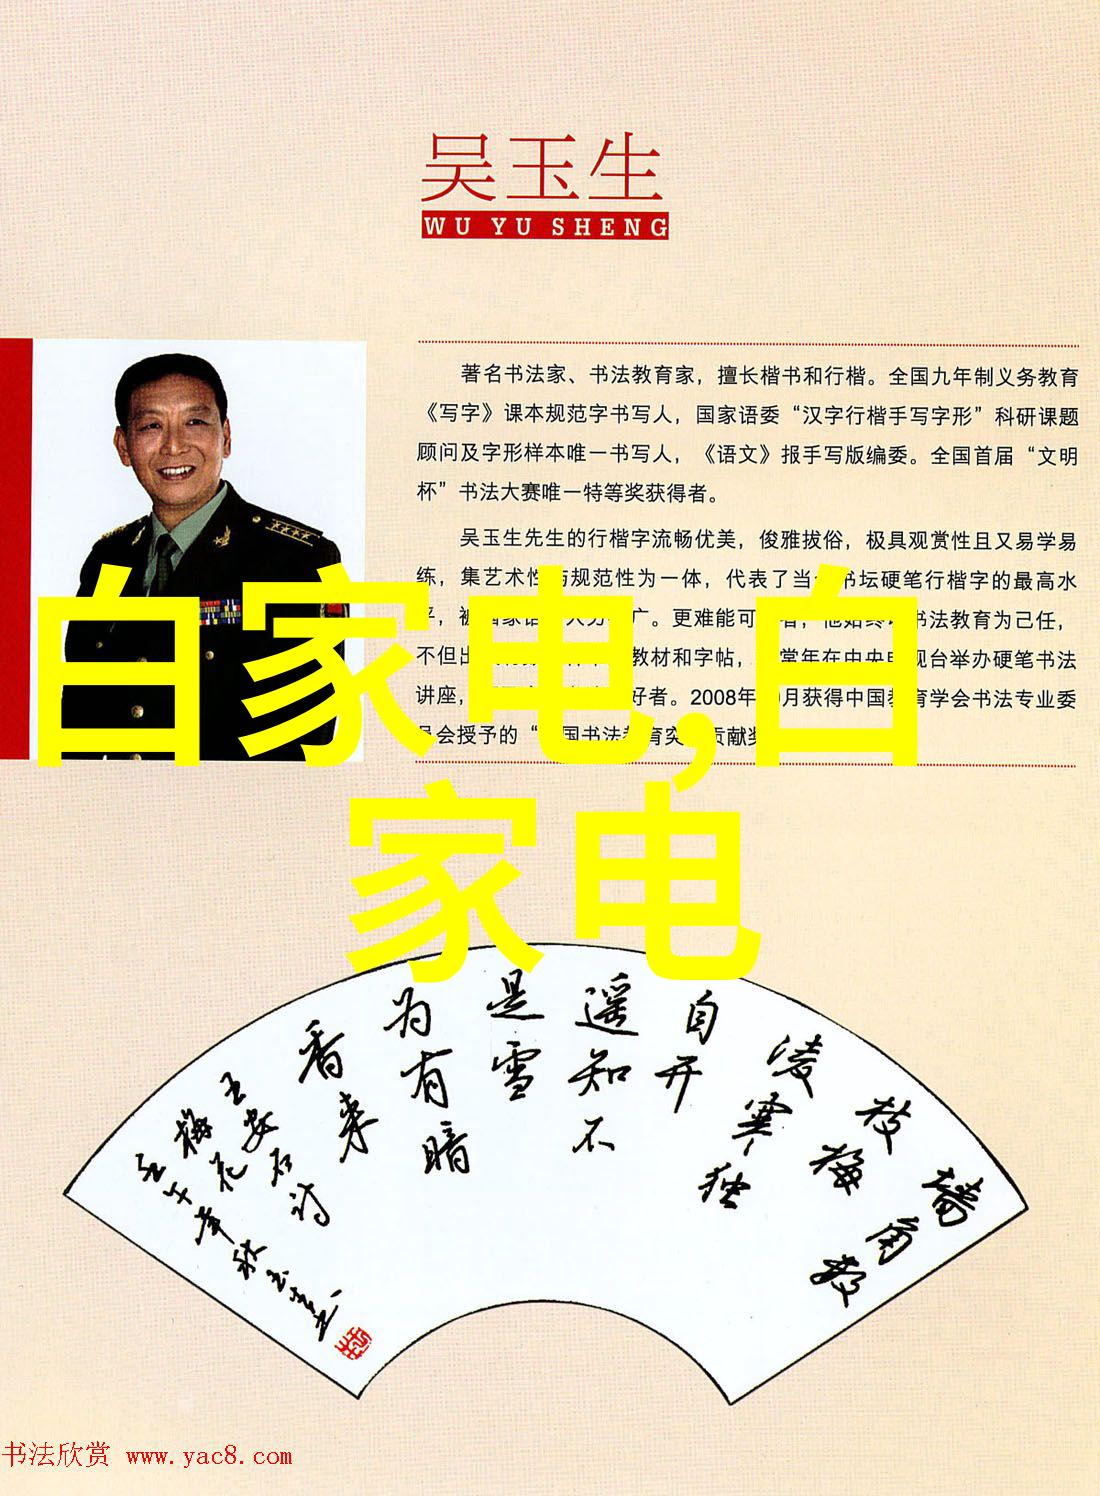 吴玉生
WU YU SHENG
著名书法家、书法教育家，擅长楷书和行楷。全国九年制义务教育
《写字》课本规范字书写人，国家语委“汉字行楷手写字形”科研课题
顾问及字形样本唯一书写人，《语文》报手写版编委。全国首届“文明
杯”书法大赛唯一特等奖获得者。
吴玉生先生的行楷字流畅优美，俊雅拔俗，极具观赏性且又易学易
练，集艺术性与规范性为一体，代表了当 书坛硬笔行楷字的最高水
平，被国家语 大力 广。更难能可 者，他始终以书法教育为己任，
不但出 教材和字帖， 常年在中央电视台举办硬笔书法
讲座， 好者。2008年 月获得中国教育学会书法专业委
员会授予的“ 国书法教育突 贡献奖
白家电,白
家电
墙角数
枝梅
凌寒独
自开
遥知不
是雪
为有暗
香来
王安石诗
梅花
壬午年秋玉生书
书法欣赏 www.yac8.com